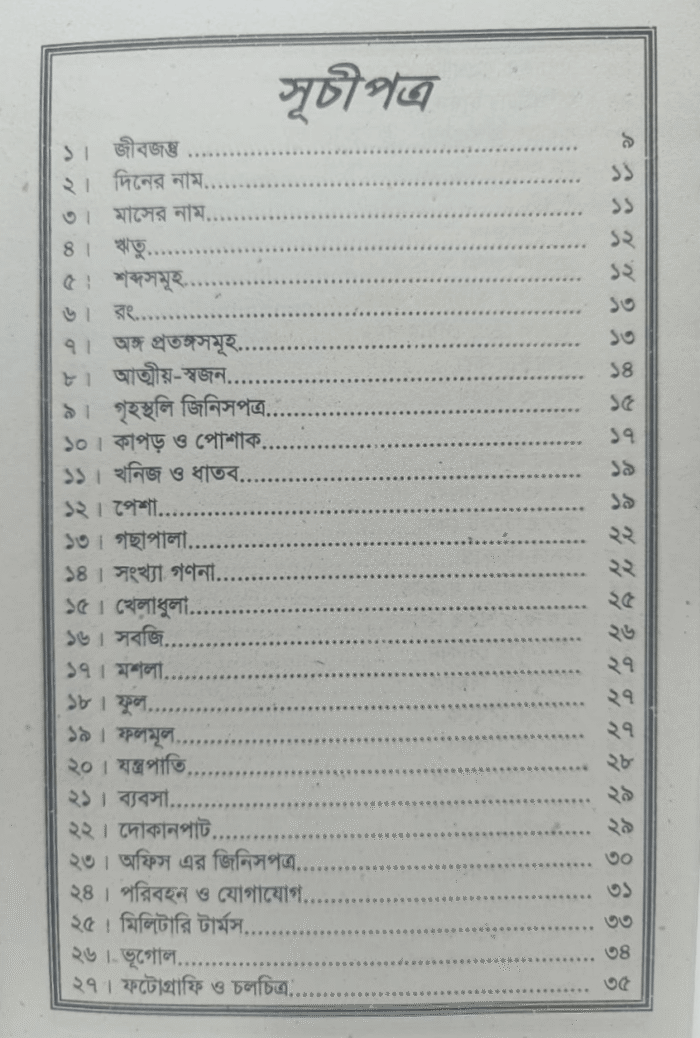 সূচীপত্র
১। জীবজন্তু ........................................................ ৯
২। দিনের নাম........................................................ ১১
৩। মাসের নাম........................................................ ১১
৪। ঋতু........................................................ ১২
৫। শব্দসমূহ........................................................ ১২
৬। রং........................................................ ১৩
৭। অঙ্গ প্রতঙ্গসমূহ........................................................ ১৩
৮। আত্মীয়-স্বজন........................................................ ১৪
৯। গৃহস্থলি জিনিসপত্র........................................................ ১৫
১০। কাপড় ও পোশাক........................................................ ১৭
১১। খনিজ ও ধাতব........................................................ ১৯
১২। পেশা........................................................ ১৯
১৩। গছাপালা........................................................ ২২
১৪। সংখ্যা গণনা........................................................ ২২
১৫। খেলাধুলা........................................................ ২৫
১৬। সবজি........................................................ ২৬
১৭। মশলা........................................................ ২৭
১৮। ফুল........................................................ ২৭
১৯। ফলমূল........................................................ ২৭
২০। যন্ত্রপাতি........................................................ ২৮
২১। ব্যবসা........................................................ ২৯
২২। দোকানপাট........................................................ ২৯
২৩। অফিস এর জিনিসপত্র........................................................ ৩০
২৪। পরিবহন ও যোগাযোগ........................................................ ৩১
২৫। মিলিটারি টার্মস........................................................ ৩৩
২৬। ভূগোল........................................................ ৩৪
২৭। ফটোগ্রাফি ও চলচিত্র........................................................ ৩৫